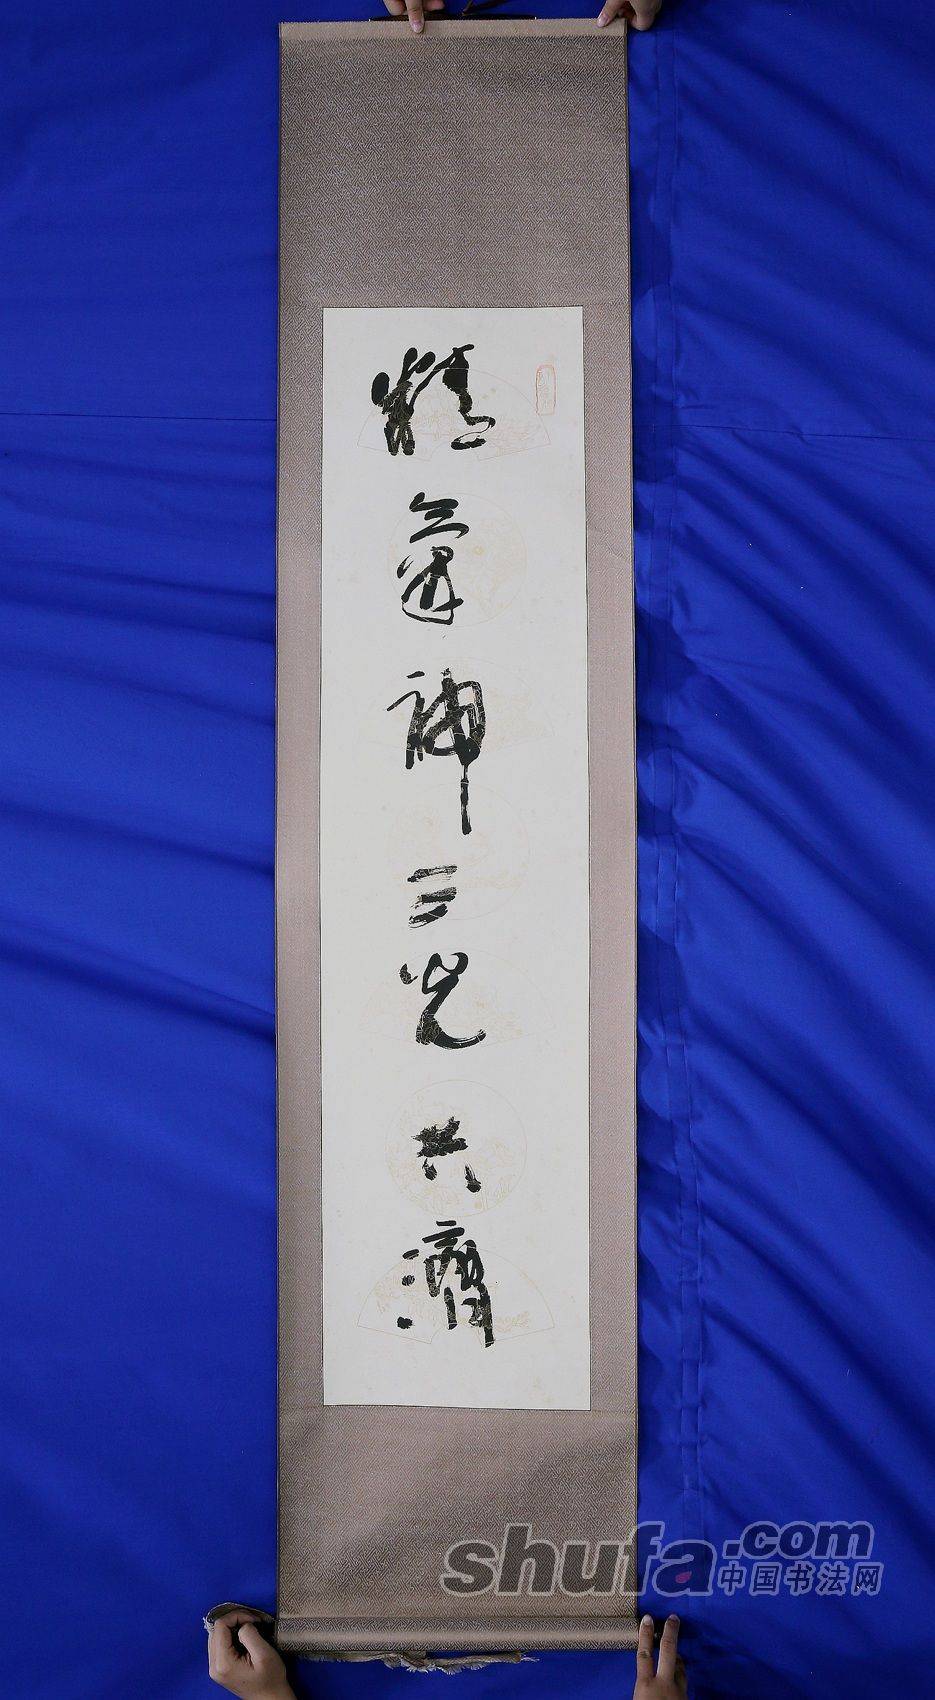 精氣神三光共濟
shufa.com
中国书法网